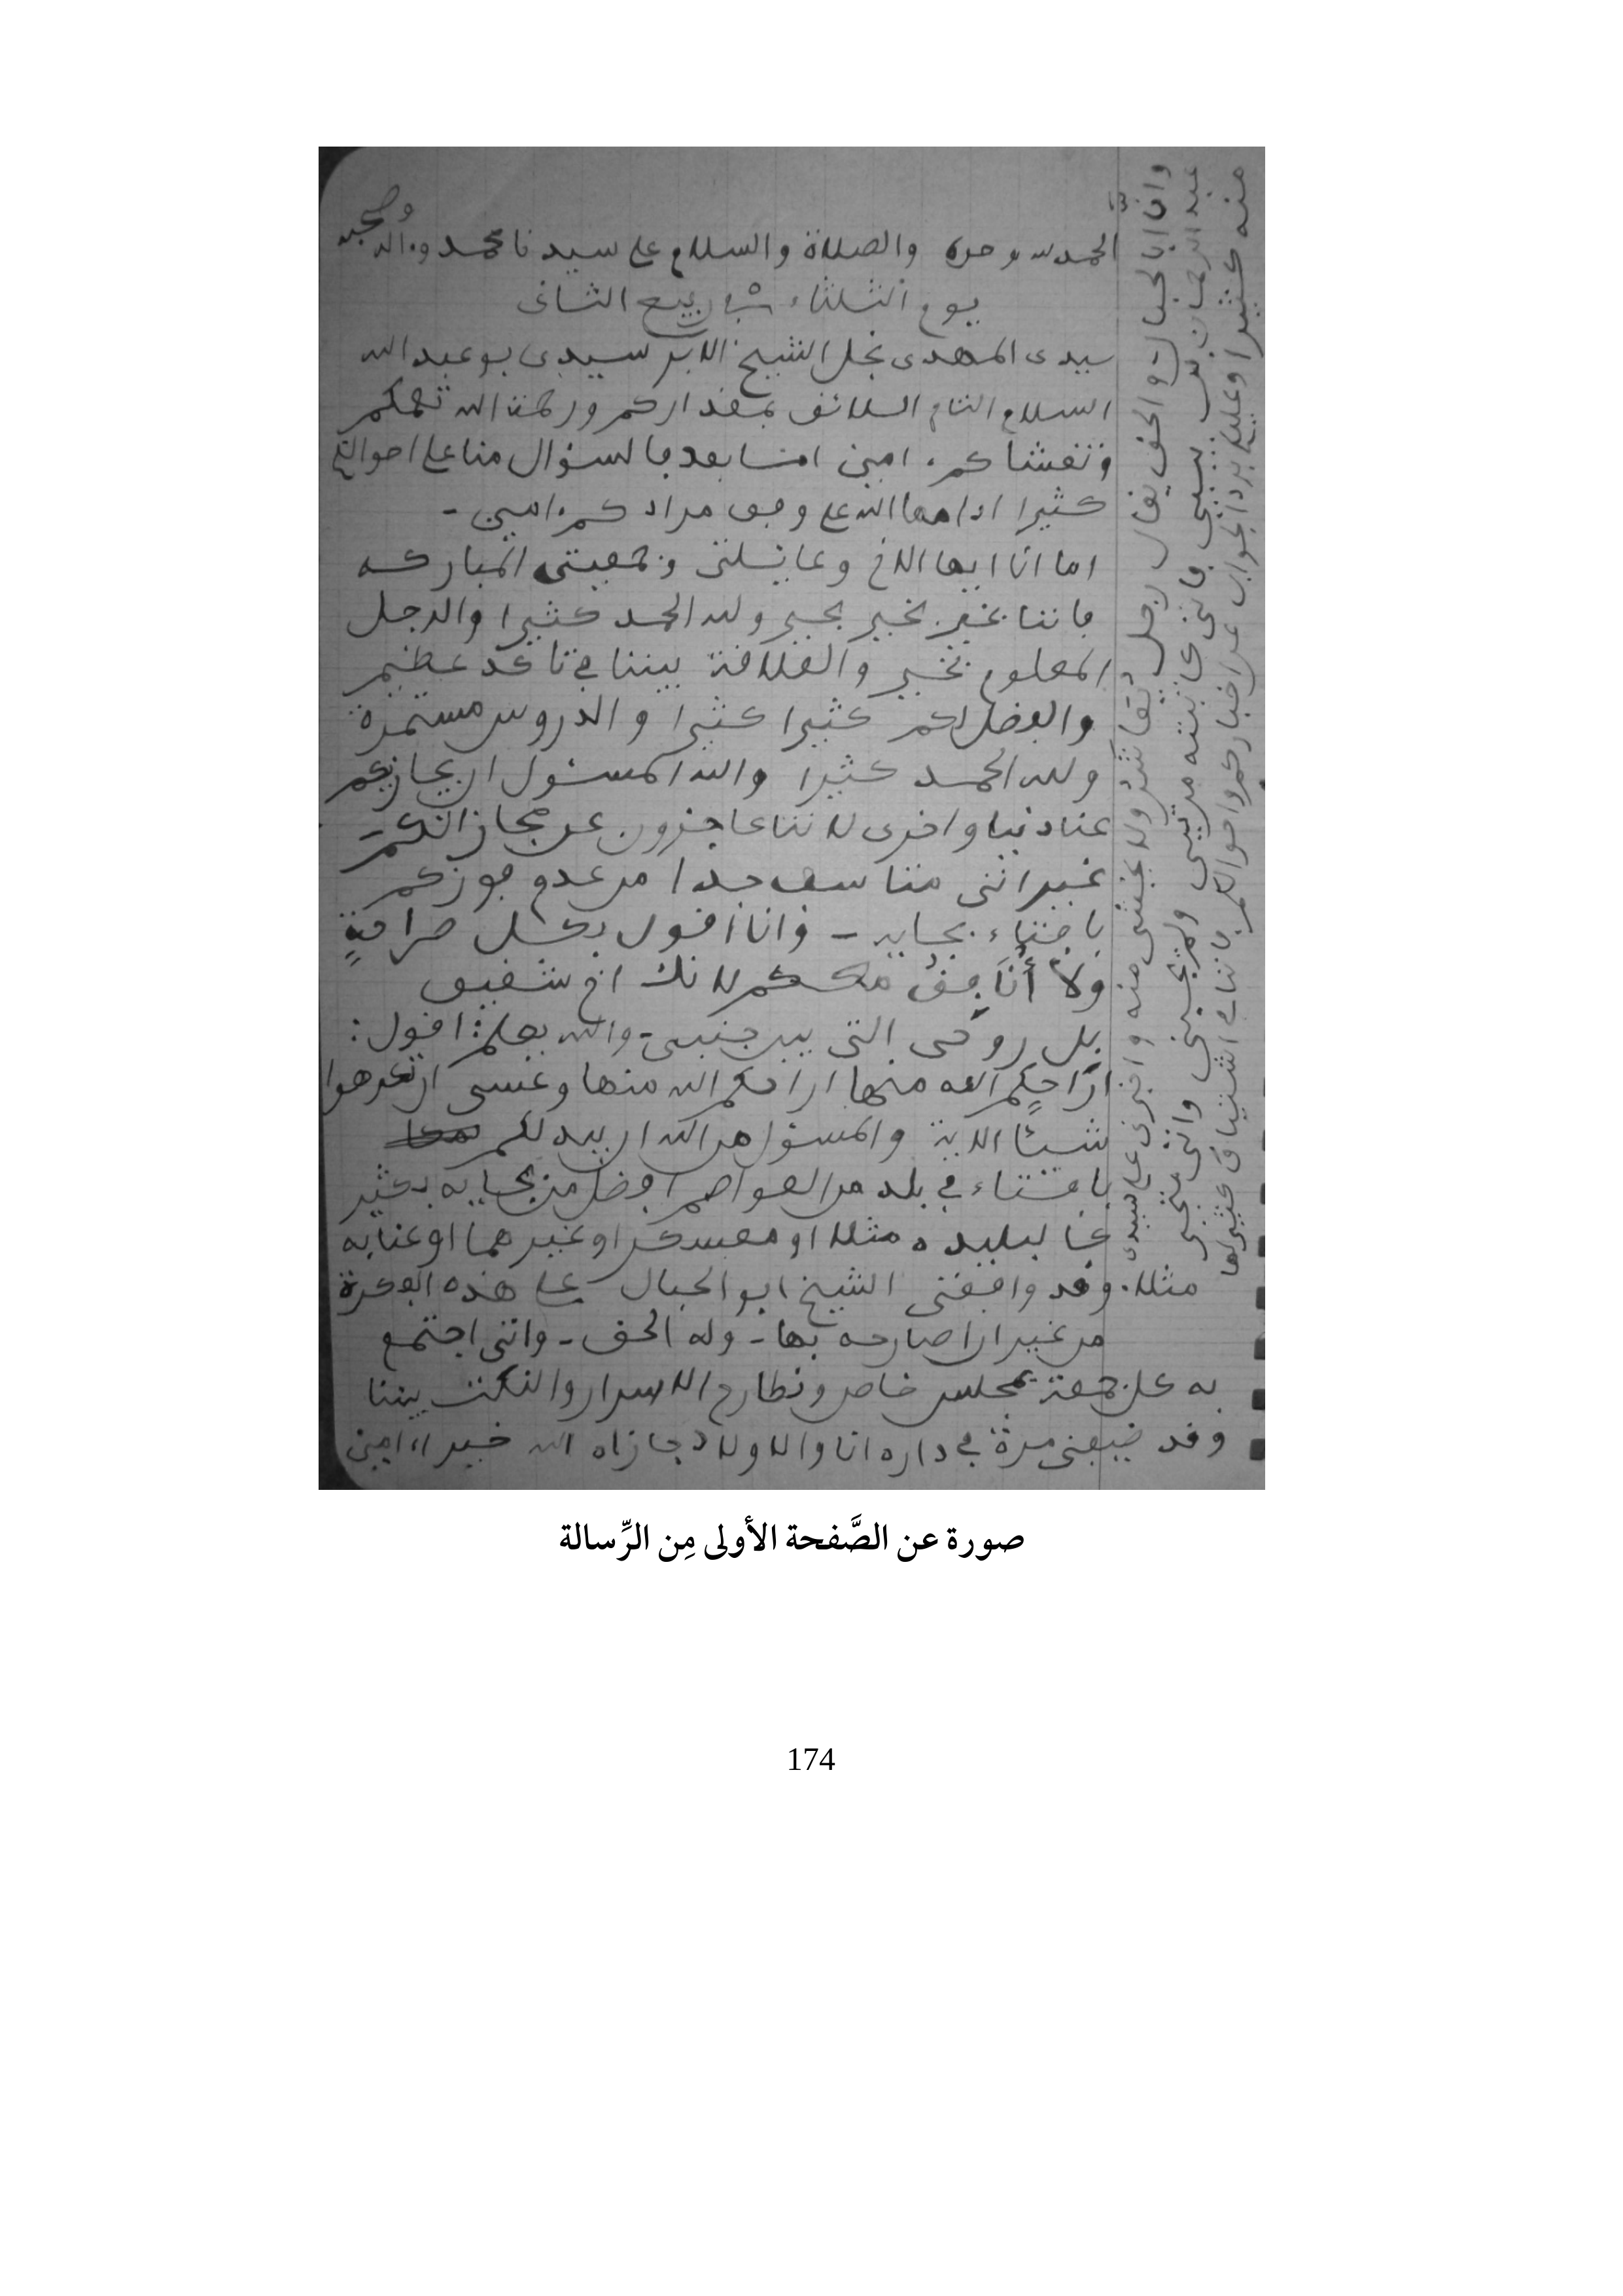 الحمد لله وحده والصلاة والسلام على سيدنا محمد وءاله وصحبه
يوم الثلثاء ربيع الثانى
سيدى المهدى نجل الشيخ الابر سيدى بوعبدالله
السلام التام اللائق بمقداركم ورحمة الله تعمكم
وتغشاكم. امين امـا بعد فالسؤال منا على احوالكم
كثيرا ادامها الله على وفق مرادكم. امين -
اما انا ايها الاخ وعائلتى وجمعيتى المباركه
فاننا بخير بخير بخير ولله الحمد كثيرا والرجل
المعلوم بخير والعلاقة بيننا في تاكد عظيم
والفضل لكم كثيرا كثيرا والدروس مستمرة
ولله الحمد كثيرا والله المسئول ان يجازيكم
عنا دنيا واخرى لاننا عاجزون عن مجازاتكم -
غير اننى متاسف جدا من عدم فوزكم
بافتاء بجايه - وانا أقول بكل صرامةٍ
ولا أنافق معكم لانك اخ شفيق
بل روحى التى بين جنبى - والله يعلم: اقول:
اراحكم الله منها اراحكم الله منها وعسى ان تكرهوا
شيئا الاية والمسئول من الله ان يبدلكم
بافتاء في بلد من العواصم افضل من بجايه بكثير
كالبليده مثلا او معسكر او غيرهما او عنابه
مثلا. وقد وافقنى الشيخ ابوالحبال على هذه الفكرة
من غير ان اصارحه بها - وله الحق - واننى اجتمع
به كل جمعة بمجلس خاص ونطارح الاسرار والنكت بيننا
وقد ضيفنى مرة في داره انا والاولاد جازاه الله خيرا، امين
وان ابا الحبال - والحق يقال - رجل
منه كثيرا وعليك برد الجواب عن اخباركم واحوالكم فاننا في اشتياق كثير لها
صورة عن الصَّفحة الأولى مِن الرِّسالة
174